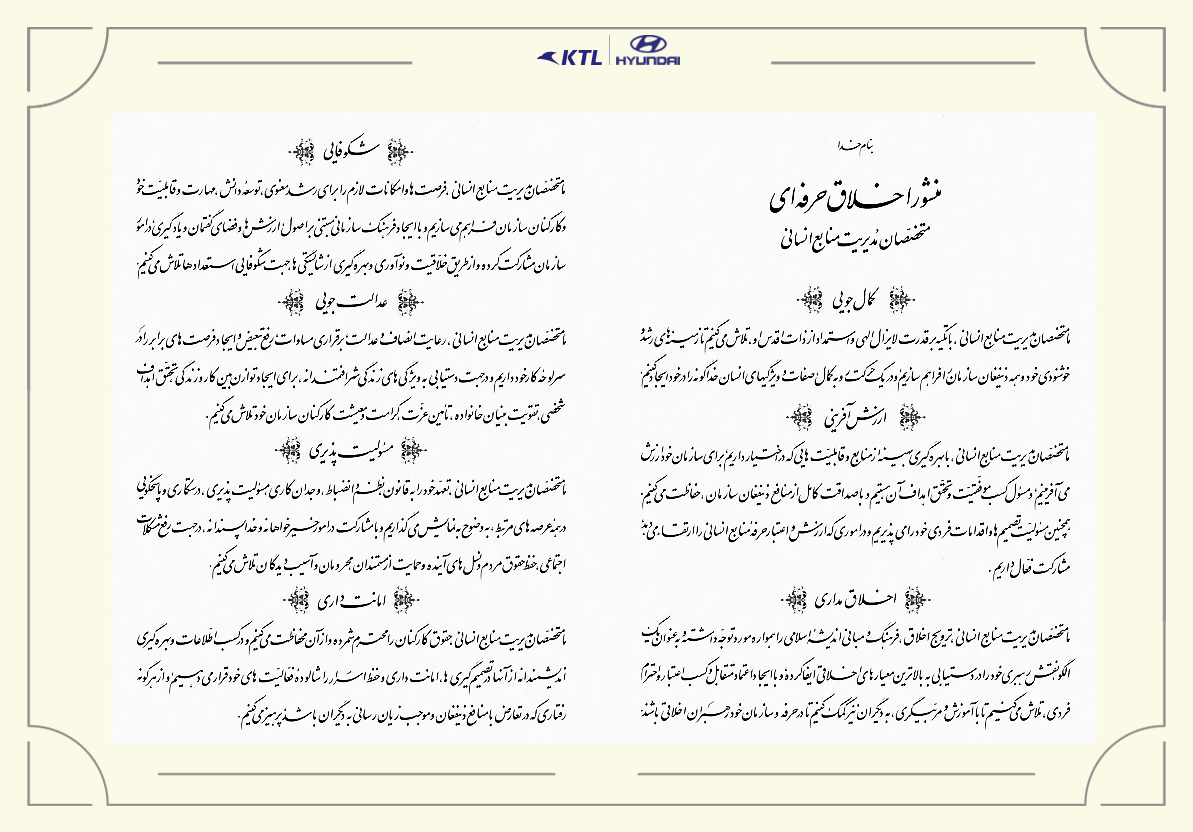 KTL HYUNDAI
بنام خدا
منشور اخلاق حرفه‌ای
متخصّصان مدیریت منابع انسانی
کمال جویی
ما متخصّصان مدیریت منابع انسانی، با تکیه بر قدرت لایزال الهی و استمداد از ذات اقدس او، تلاش می‌کنیم تا زمینه‌های رشد و
خوشنودی خود و همه ذینفعان سازمان را فراهم سازیم و در یک حرکت رو به کمال، صفات و ویژگیهای انسان خداگونه را در خود ایجاد کنیم.
ارزش آفرینی
ما متخصّصان مدیریت منابع انسانی، با بهره‌گیری بهینه از منابع و قابلیّت هایی که در اختیار داریم، برای سازمان خود ارزش
می‌آفرینیم و مسئول کسب موفقیّت و تحقق اهداف آن هستیم و با صداقت کامل از منافع ذینفعان سازمان، حفاظت می‌کنیم.
همچنین مسئولیّت تصمیم ها و اقدامات فردی خود را می پذیریم و در اموری که ارزش و اعتبار حرفه منابع انسانی را ارتقاء می‌دهد،
مشارکت فعال داریم.
اخلاق مداری
ما متخصّصان مدیریت منابع انسانی، ترویج اخلاق، فرهنگ و مبانی اندیشه اسلامی را همواره مورد توجّه داشته و به عنوان یک
الگو، نقش رهبری خود را در دستیابی به بالاترین معیارهای اخلاقی ایفا کرده و با ایجاد اعتماد متقابل و کسب اعتبار و احترام
فردی، تلاش می‌کنیم تا با آموزش و مربّیگری، به دیگران نیز کمک کنیم تا در حرفه و سازمان خود رهبران اخلاقی باشند.
شکوفایی
ما متخصّصان مدیریت منابع انسانی، فرصت ها و امکانات لازم را برای رشد معنوی، توسعه دانش، مهارت و قابلیّت خود
و کارکنان سازمان فراهم می سازیم و با ایجاد فرهنگ سازمانی مبتنی بر اصول ارزش ها و فضای گفتمان و یادگیری در امور
سازمان مشارکت کرده و از طریق خلاّقیت و نوآوری و بهره‌گیری از شایستگی ها جهت شکوفایی استعدادها تلاش می‌کنیم.
عدالت جویی
ما متخصّصان مدیریت منابع انسانی، رعایت انصاف و عدالت، برقراری مساوات، رفع تبعیض و ایجاد فرصت های برابر را در
سرلوحه کار خود داریم و در جهت دستیابی به ویژگی های زندگی شرافتمندانه، برای ایجاد توازن بین کار و زندگی، تحقّق اهداف
شخصی، تقویت بنیان خانواده، تأمین عزّت، کرامت و معیشت کارکنان سازمان خود تلاش می‌کنیم.
مسئولیت پذیری
ما متخصّصان مدیریت منابع انسانی، تعهّد خود را به قانون، نظم و انضباط، وجدان کاری، مسئولیت پذیری، درستکاری و پاسخگویی
در همه عرصه های مرتبط، به وضوح به نمایش می گذاریم و با مشارکت در امور خیرخواهانه و خداپسندانه، در جهت رفع مشکلات
اجتماعی، حفظ حقوق مردم و نسل های آینده و حمایت از مستمندان، محرومان و آسیب دیدگان تلاش می‌کنیم.
امانت داری
ما متخصّصان مدیریت منابع انسانی، حقوق کارکنان را محترم شمرده و از آن محافظت می‌کنیم و در کسب اطّلاعات و بهره‌گیری
اندیشمندانه از آنها در تصمیم‌گیری ها، امانت داری و حفظ اسرار را شالوده فعالیّت های خود قرار می‌دهیم و از هرگونه
رفتاری که در تعارض با منافع ذینفعان و موجب زیان رسانی به دیگران باشد، پرهیز می‌کنیم.